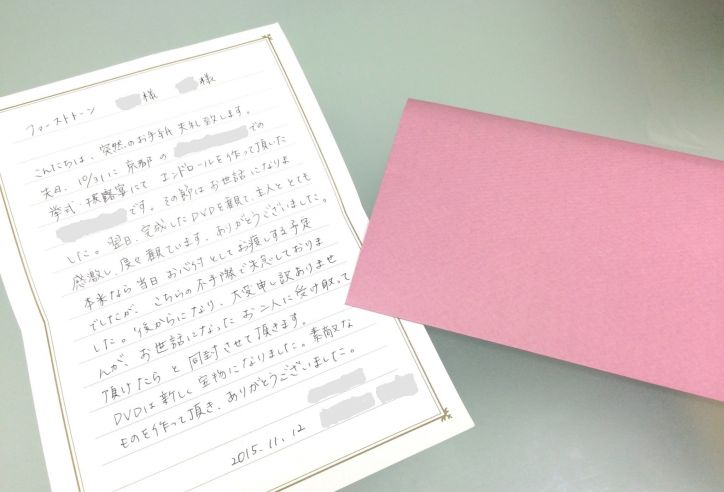 ファーストトーン 様 様
こんにちは、突然のお手紙 失礼致します。
先日、10/31に 京都の での
挙式・披露宴にて エンドロールを作って頂いた
です。その節はお世話になりま
した。翌日、完成したDVDを観て、主人ととても
感激し、度々観ています。ありがとうございました。
本来なら当日 お心付としてお渡しする予定
でしたが、こちらの不手際で失念しておりま
した。後からになり、大変申し訳ありませ
んが、お世話になった お二人に受け取って
頂けたらと 同封させて頂きます。
DVDは新しい宝物になりました。素敵な
ものを作って頂き、ありがとうございました。
2015.11.12